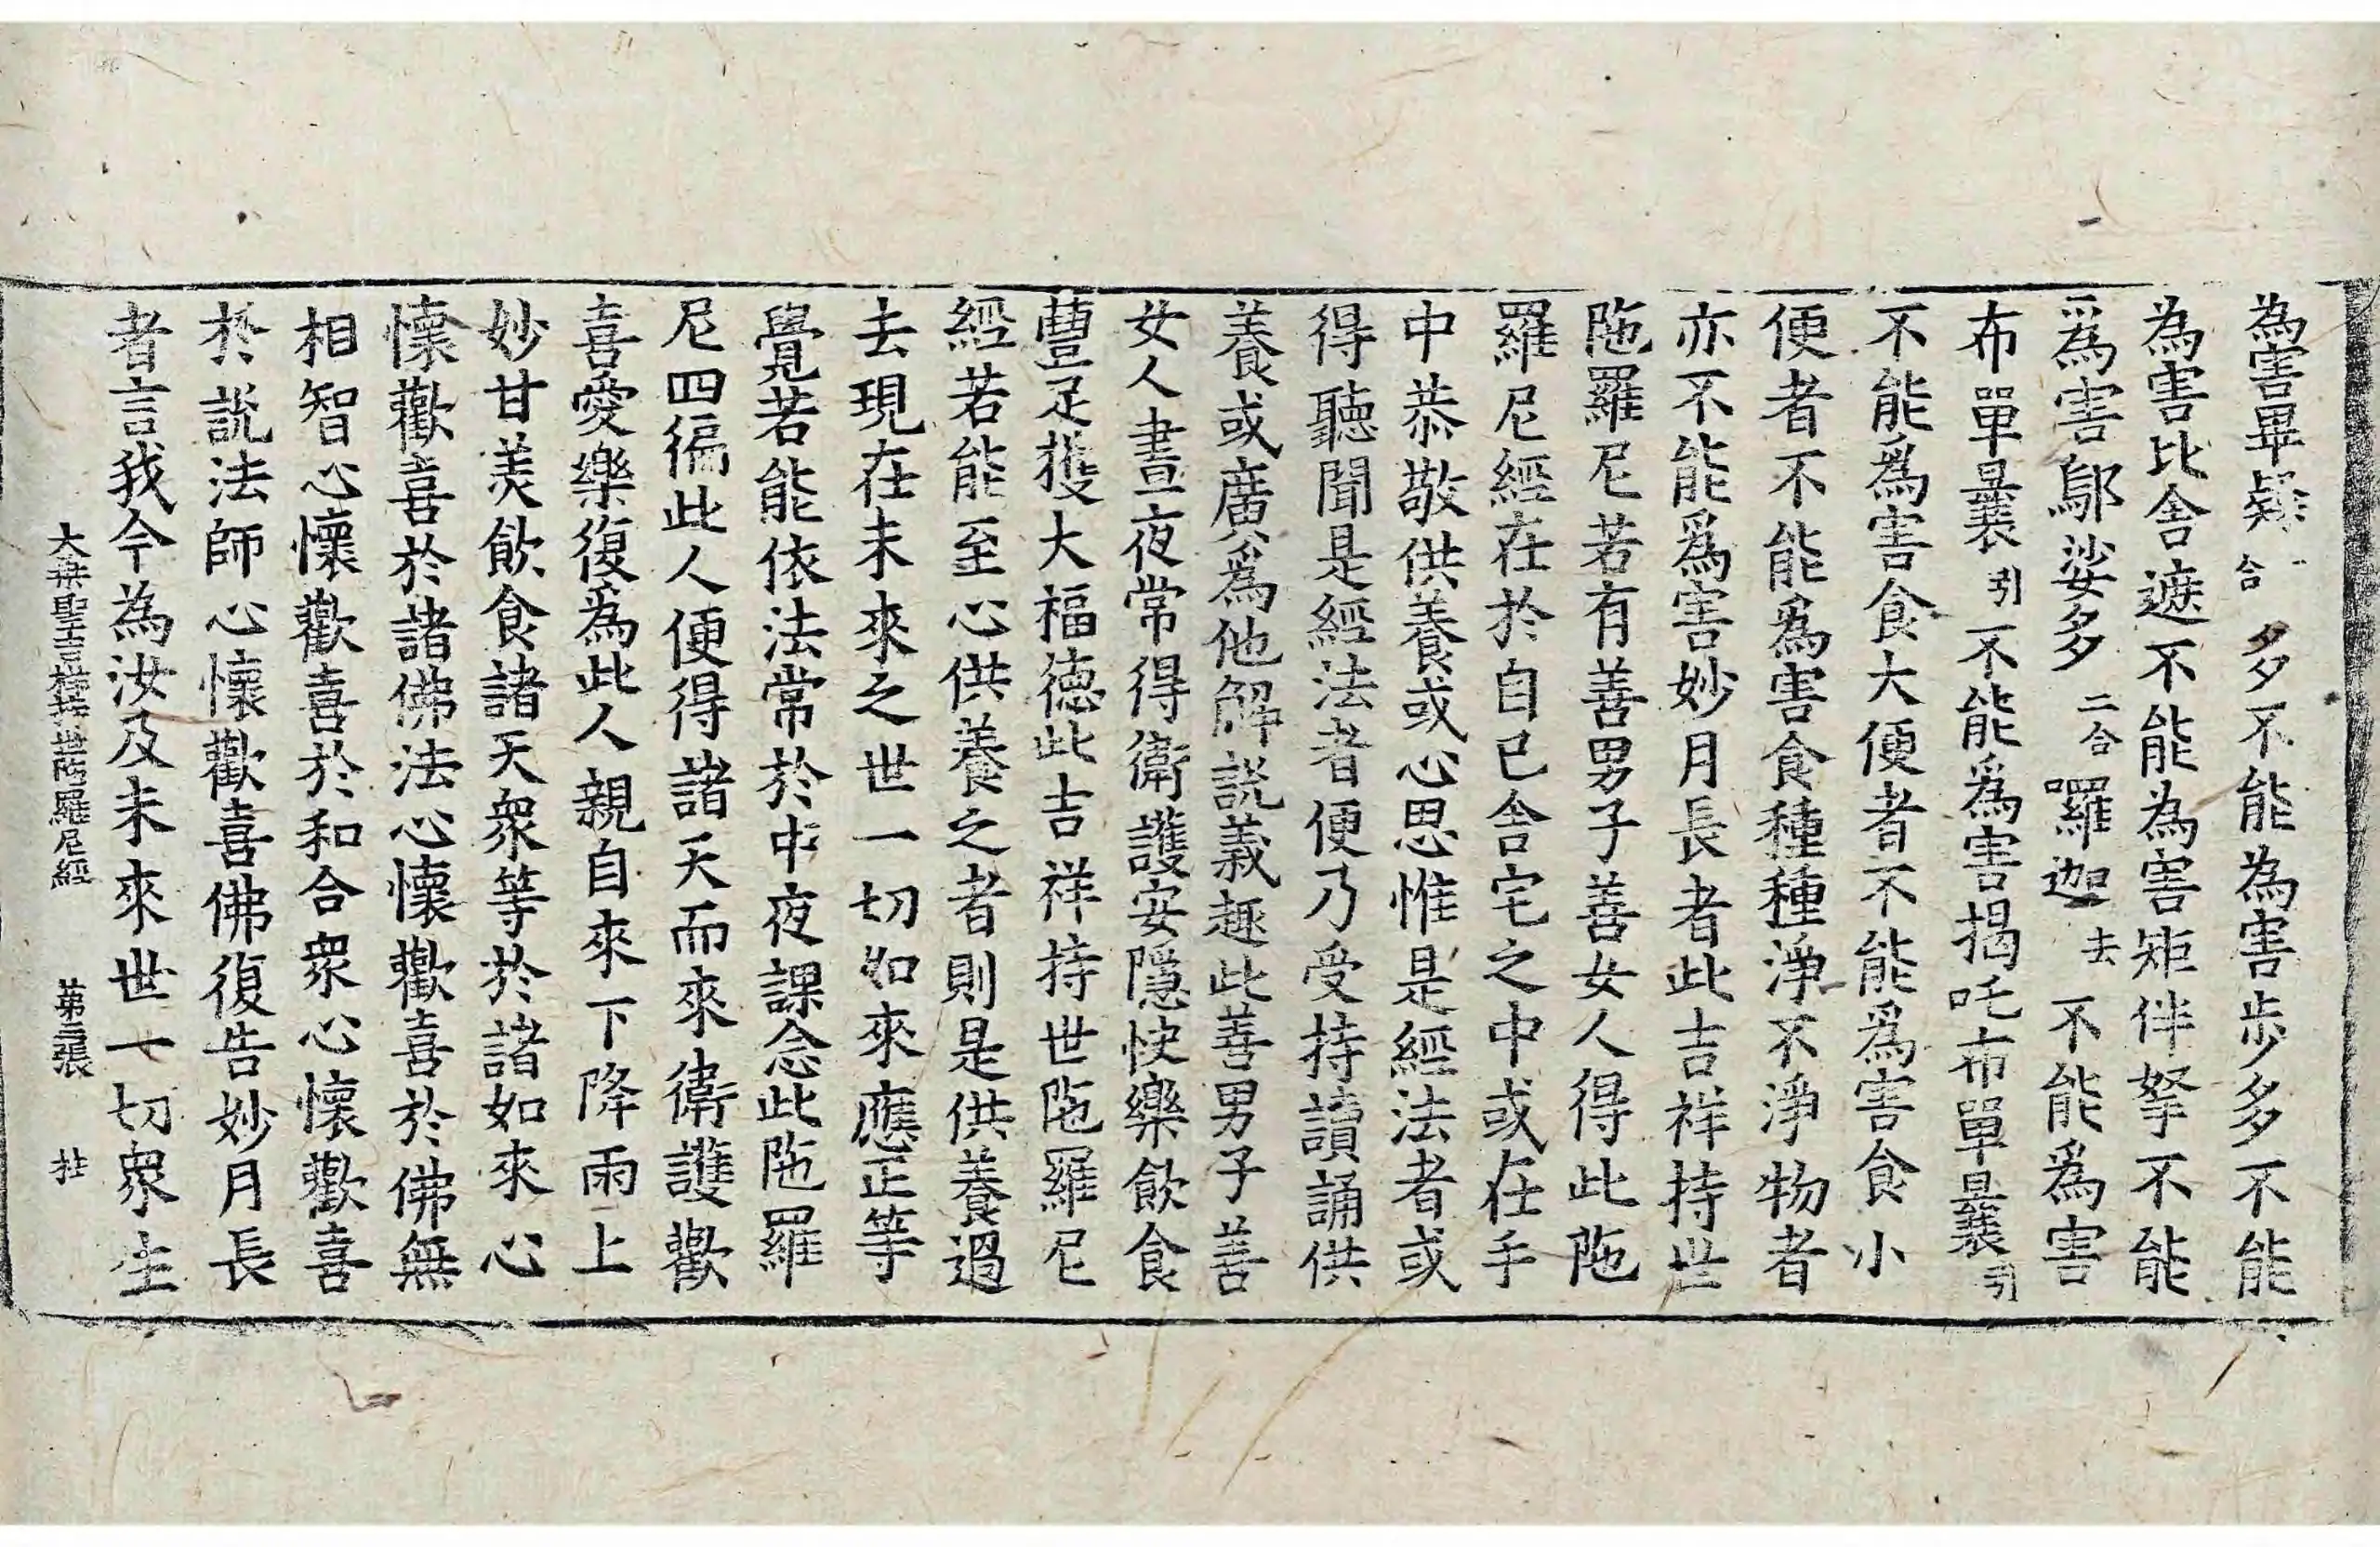 為害畢䠶合多不能為害步多不能
為害比舍遮不能為害矩伴拏不能
爲害鄔娑多二合囉迦去不能爲害
布單曩引不能爲害揭吒布單曩引
不能爲害食大便者不能爲害食小
便者不能爲害食種種淨不淨物者
亦不能爲害妙月長者此吉祥持世
陁羅尼若有善男子善女人得此陁
羅尼經在於自己舍宅之中或在手
中恭敬供養或心思惟是經法者或
得聽聞是經法者便乃受持讀誦供
養或廣爲他解説義趣此善男子善
女人晝夜常得衛護安隱快樂飲食
豐足獲大福德此吉祥持世陁羅尼
經若能至心供養之者則是供養過
去現在未來之世一切如來應正等
覺若能依法常於中夜課念此陁羅
尼四徧此人便得諸天而來衛護歡
喜愛樂復爲此人親自來下降雨上
妙甘美飲食諸天衆等於諸如來心
懷歡喜於諸佛法心懷歡喜於佛無
相智心懷歡喜於和合衆心懷歡喜
於説法師心懷歡喜佛復告妙月長
者言我今為汝及未來世一切衆生
大乘聖吉祥持世陁羅尼經 第三張